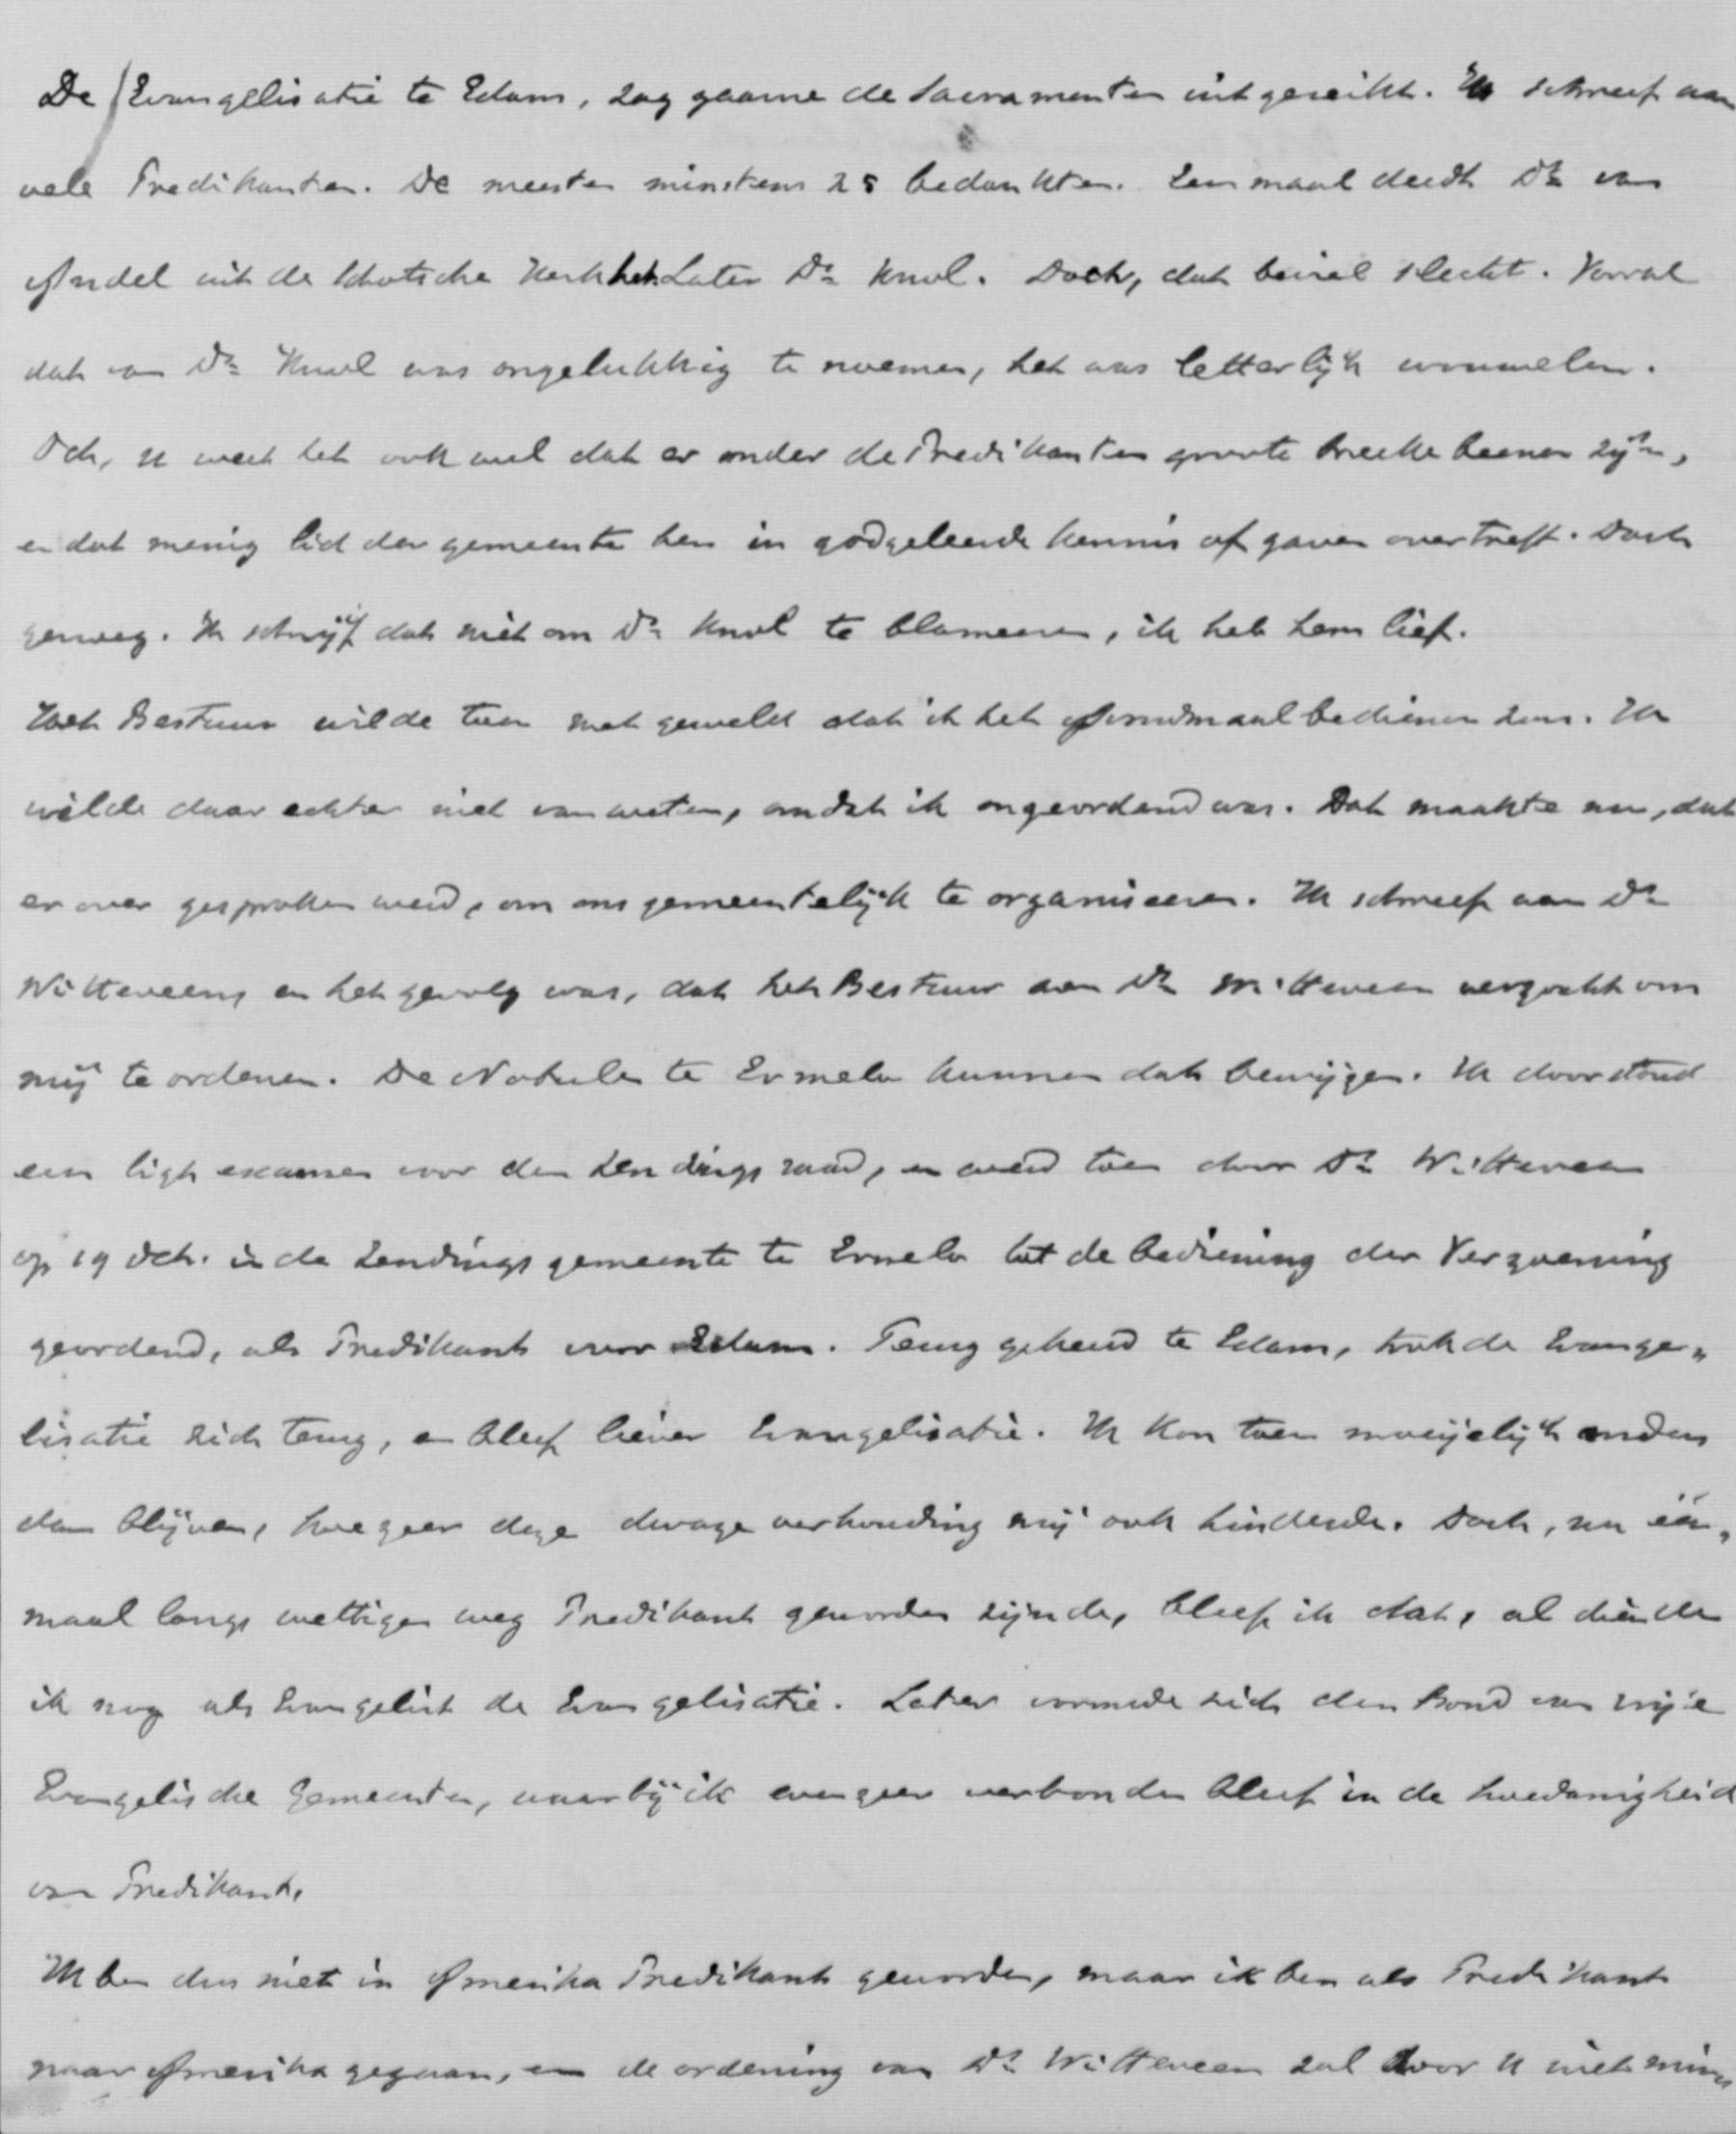 De Evangelisatie te Edam, zag gaarne de Sacramenten uitgereikt. Ik schreef aan
vele Predikanten. De meesten minstens 25 bedankten. Eenmaal deedt Ds van
Andel uit de Schotsche Kerk het. Later Ds Knol. Doch, dat beviel slecht. Vooral
dat van Ds Knol was ongelukkig te noemen, het was letterlijk wommelen.
Och, u weet het ook wel dat er onder de Predikanten groote brekebeenen zijn,
en dat menig lid der gemeente hen in godgeleerde kennis of gaven overtreft. Doch
genoeg. Ik schrijf dat niet om Ds Knol te blameeren, ik heb hem lief.
Het Bestuur wilde toen met geweld dat ik het Avondmaal bedienen zou. Ik
wilde daar echter niet van weten, omdat ik ongeordend was. Dat maakte nu, dat
er over gesproken werd, om ons gemeentelijk te organiseren. Ik schreef aan Ds
Witteveen, en het gevolg was, dat het Bestuur aan Ds Witteveen verzocht om
mij te ordenen. De Notulen te Ermelo kunnen dat bewijzen. Ik doorstond
een ligt examen voor den Zendingsraad, en werd toen door Ds Witteveen
op 19 Oct. in de Zendingsgemeente te Ermelo tot de bediening der Verzoening
geordend, als Predikant voor Edam. Terug gekeerd te Edam, trok de Evange„
lisatie zich terug, en bleef liever Evangelisatie. Ik kon toen moeijelijk anders
dan blijven, hoezeer deze dwaze verhouding mij ook hinderde. Doch, nu één„
maal langs wettigen weg Predikant geworden zijnde, bleef ik dat, al diende
ik nog als Evangelist de Evangelisatie. Later vormde zich den Bond van vrije
Evangelische Gemeenten, waarbij ik evenzeer verbonden bleef in de hoedanigheid
van Predikant.
Ik ben dus niet in Amerika Predikant geworden, maar ik ben als Predikant
naar Amerika gegaan, en de ordening van Ds Witteveen zal door u niet minder